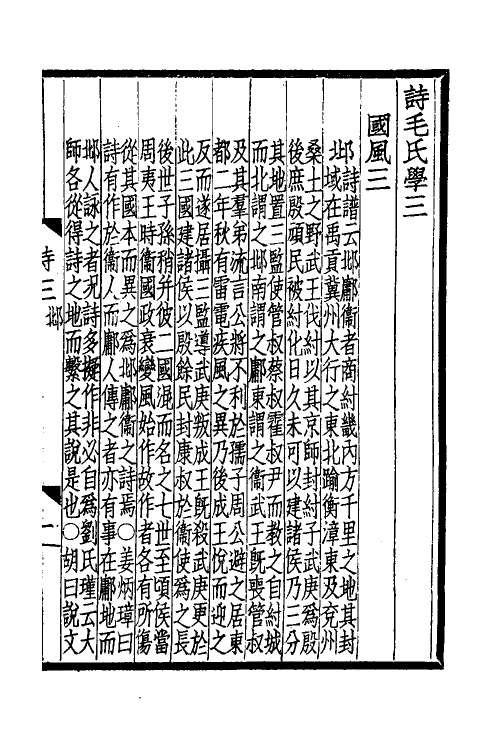 詩毛氏學三
國風三
邶詩譜云邶鄘衞者商紂畿內方千里之地其封
域在禹貢冀州大行之東北踰衡漳東及兗州
桑土之野武王伐紂以其京師封紂子武庚爲殷
後庶殷頑民被紂化日久未可以建諸侯乃三分
其地置三監使管叔蔡叔霍叔尹而教之自紂城
而北謂之邶南謂之鄘東謂之衞武王旣喪管叔
及其羣弟流言公將不利於孺子周公避之居東
都二年秋有雷電疾風之異乃後成王悅而迎之
反而遂居攝三監導武庚叛成王旣殺武庚更於
此三國建諸侯以殷餘民封康叔於衞使爲之長
後世子孫稍并彼二國混而名之七世至頃侯當
周夷王時衞國政衰變風始作故作者各有所傷
從其國本而異之爲邶鄘衞之詩焉○姜炳璋曰
詩有作於衞人而鄘人傳之者亦有事在鄘地而
邶人詠之者況詩多擬作非必自爲劉氏瑾云大
師各從得詩之地而繫之其說是也○胡曰說文
詩三 邶
一